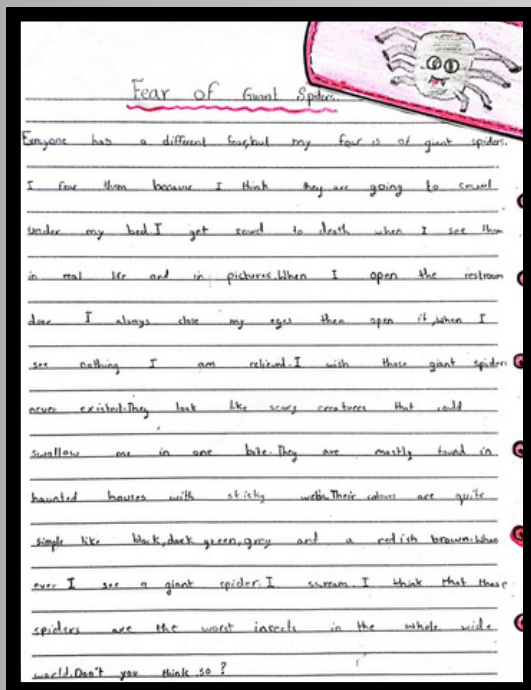 Fear of Giant Spiders.
Everyone has a different fear,but my fear is of giant spiders.
I fear them because I think they are going to crawl
under my bed.I get scared to death when I see them
in real life and in pictures.When I open the restroom
door I always close my eyes then open it,when I
see nothing I am relieved.I wish those giant spiders
never existed.They look like scary creatures that could
swallow me in one bite.They are mostly found in
haunted houses with sticky webs.Their colours are quite
simple like black,dark green,grey and a redish brown.When
ever I see a giant spider.I scream.I think that those
spiders are the worst insects in the whole wide
world.Don't you think so?